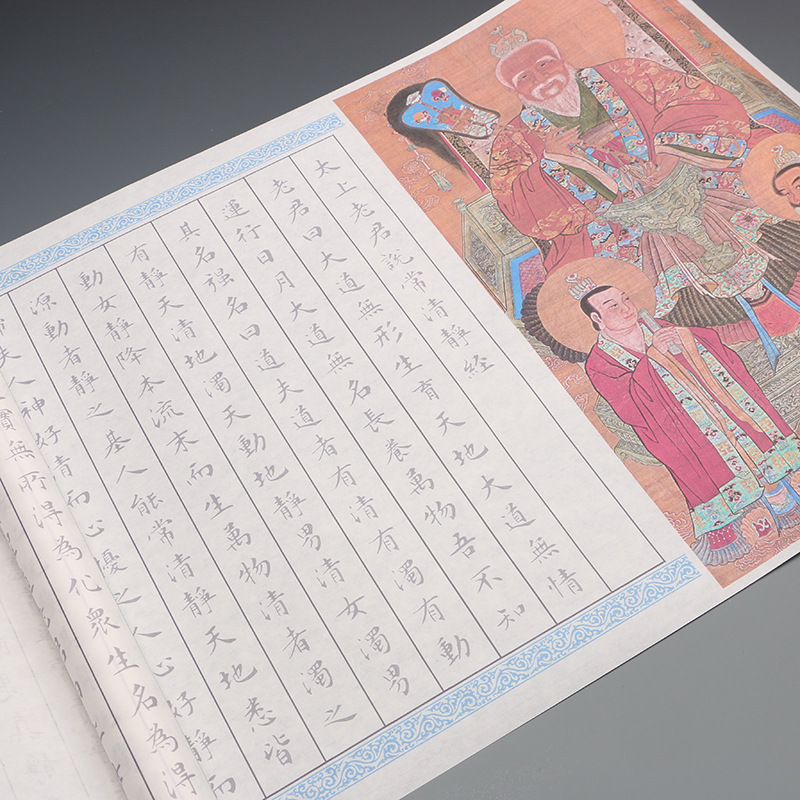 太上老君說常清靜経
老君曰大道無形生育天地大道無情
運行日月大道無名長養萬物吾不知
其名强名曰道夫道者有清有濁有動
有靜天清地濁天動地靜男清女濁男
動女靜降本流末而生萬物清者濁之
源動者靜之基人能常清靜天地悉皆
夫人神好清而心擾之人心好靜而
實無所得為化衆生名為得